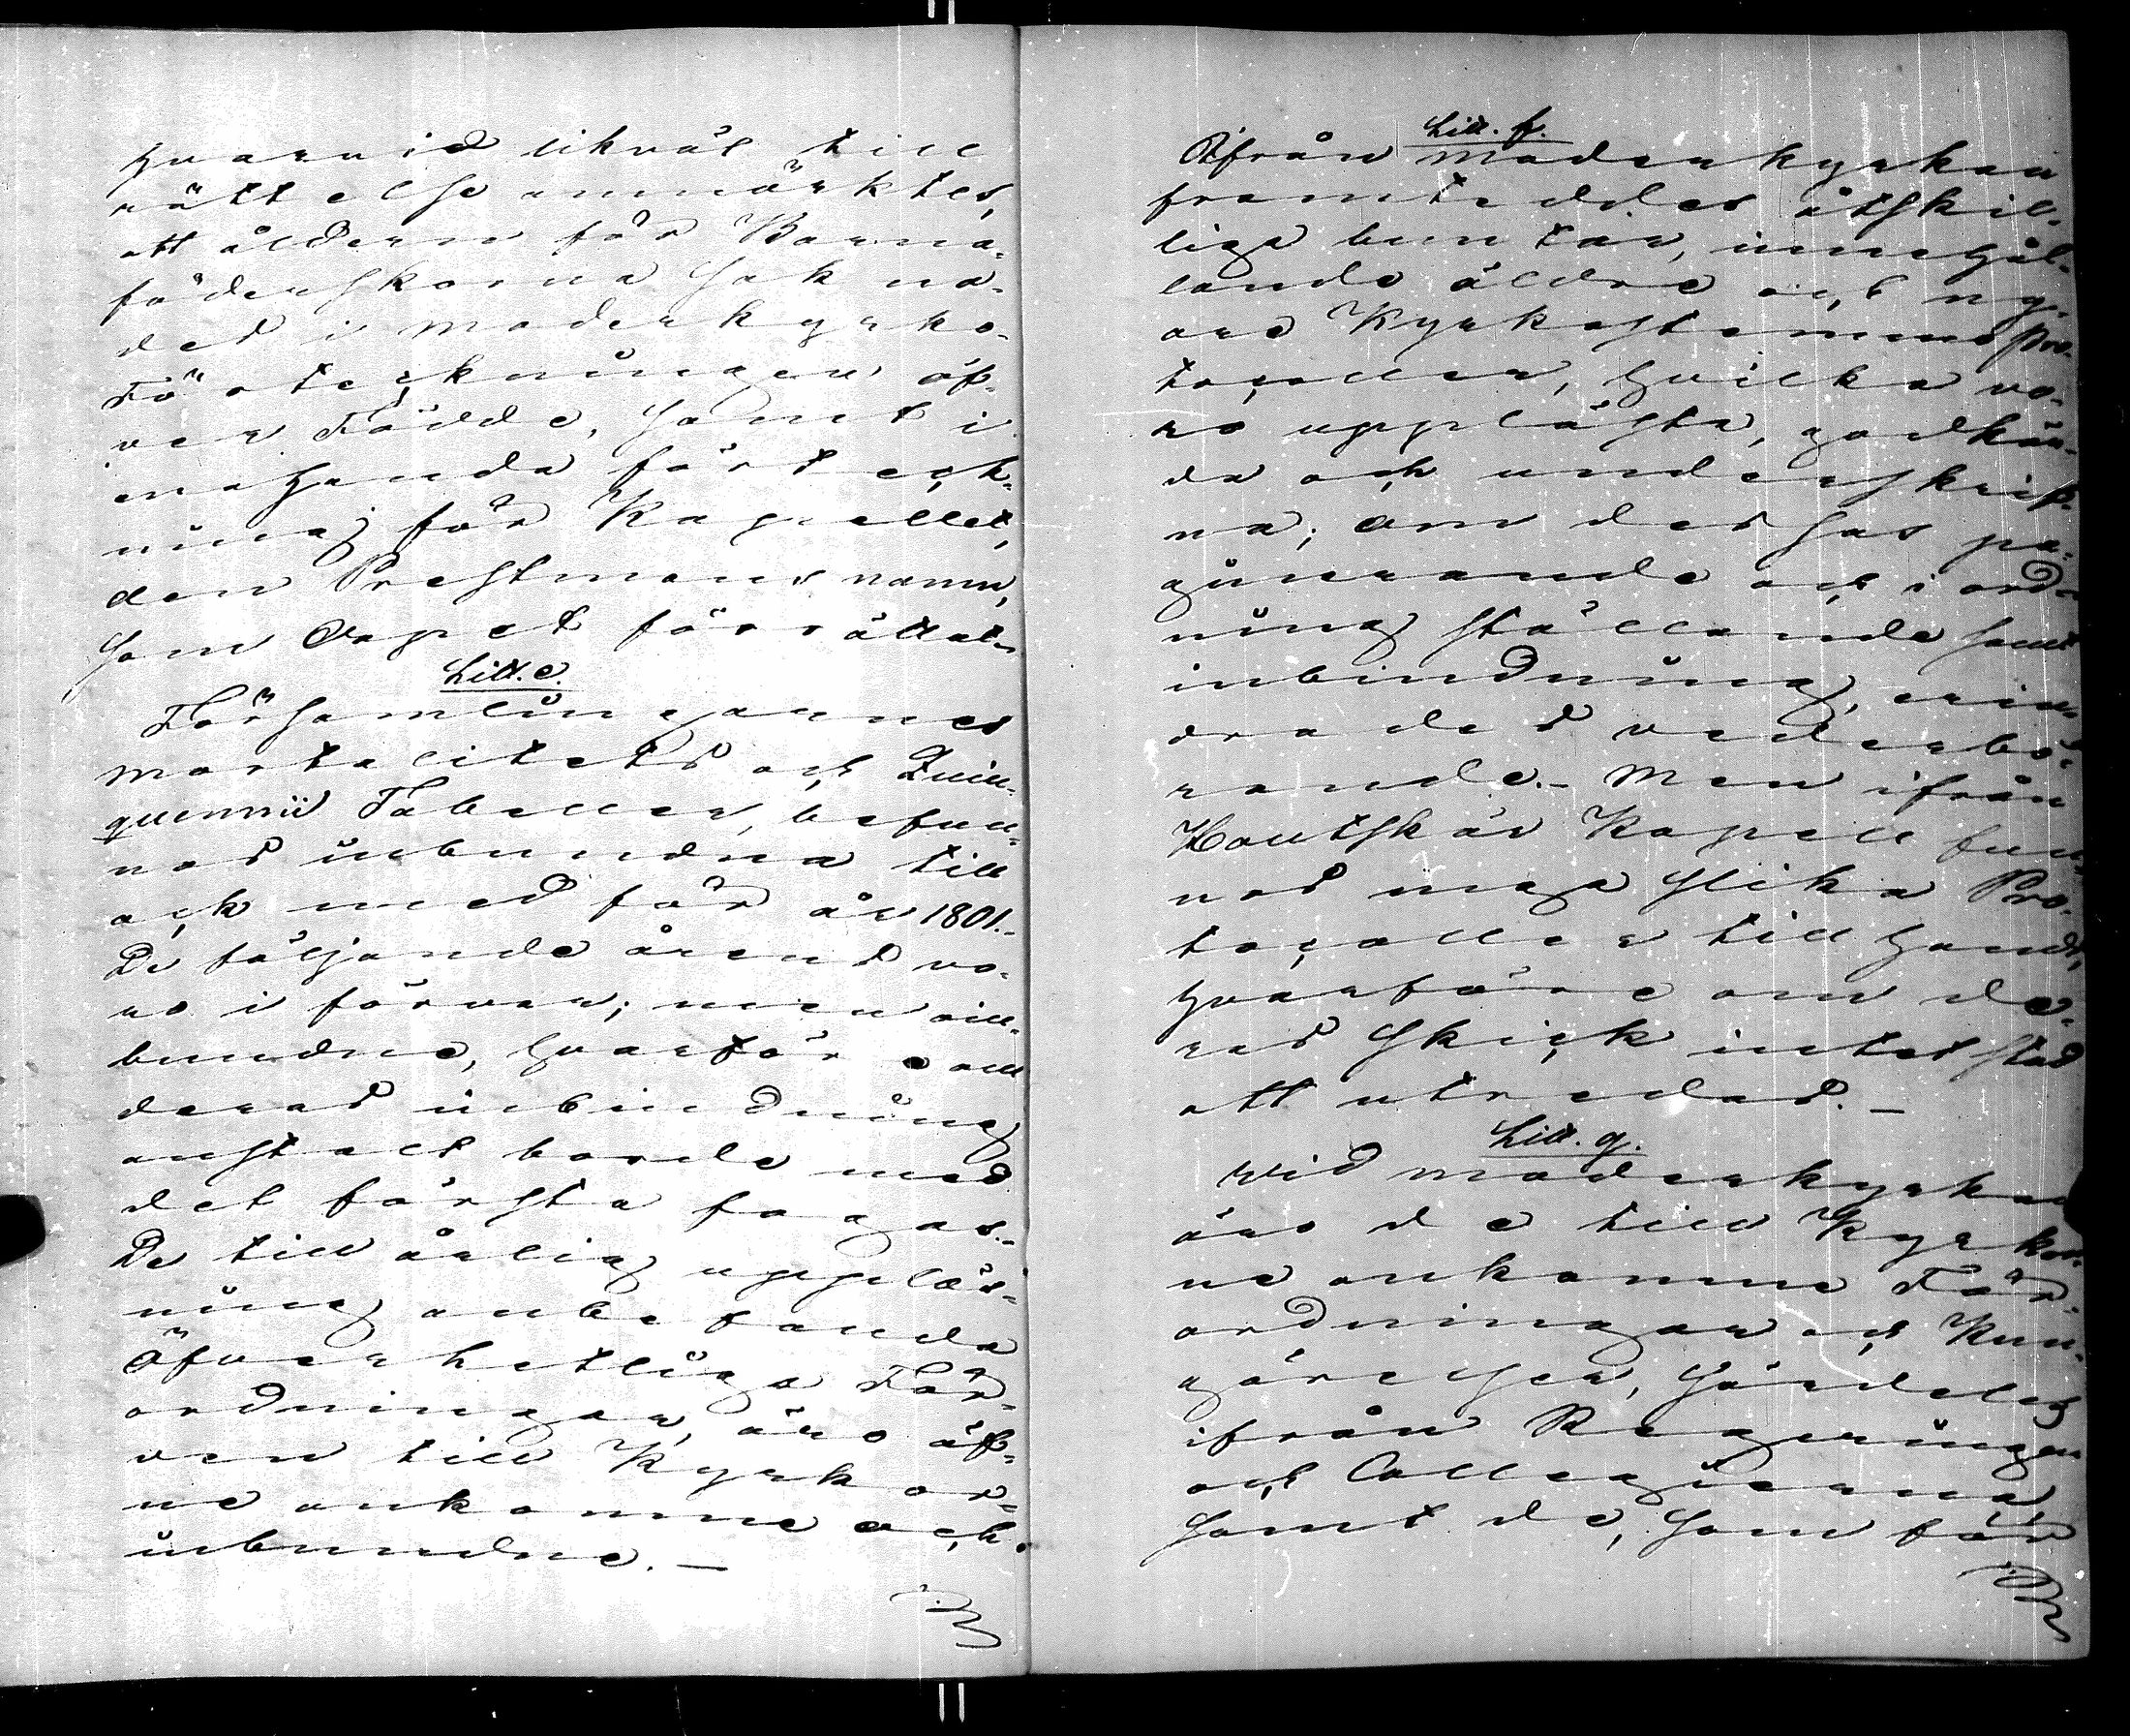 hvarvid likväl till
rättelse anmärktes,
att åldern för Barna-
föderskorna sakna-
des i moderkyrko-
Förteckningen öf-
ver Födde, samt i
enahanda förteck-
ning för Kapellet,
den Prestmans namn,
som Dopet förrättat.
Litt. e.
Församlingarnes
mortalitets och Quin-
quennii Tabeller, befun-
nos inbundna till
och med för år 1801.-
De följande årens vo-
ro i förvar; men oin-
bundne, hvarföre om
deras inbindning
anstalt borde med
det första fogas.-
De till årlig uppläs-
ning anbefalda
Öfverhetliga För-
ordningar, äro äf-
ven till Kyrkor-
ne ankomne och
inbundne. -
Litt. f.
Ifrån moderkyrkan
framteddes åtskil-
liga buntar, innehål-
lande äldre och ny-
are Kyrkostemmo Pro-
tocoller, hvilka vo-
ro upplästa, godkän-
da och underskrif-
na; om dessas pa-
ginerande och i ord-
ning ställande samt
inbindning, erin-
rades vederbö-
rande.- Men ifrån
Houtskär Kapell fun-
nos inga slika Pro-
tocoller till hands,
hvarföre om de-
ras skick intet stod
att utredas. -
Litt. g.
Vid moderkyrkan
äro de till Kyrkor-
ne ankomne För-
ordningar och Kun-
görelser, särdeles
ifrån Regeringen
och Collegierna,
samt de, som för